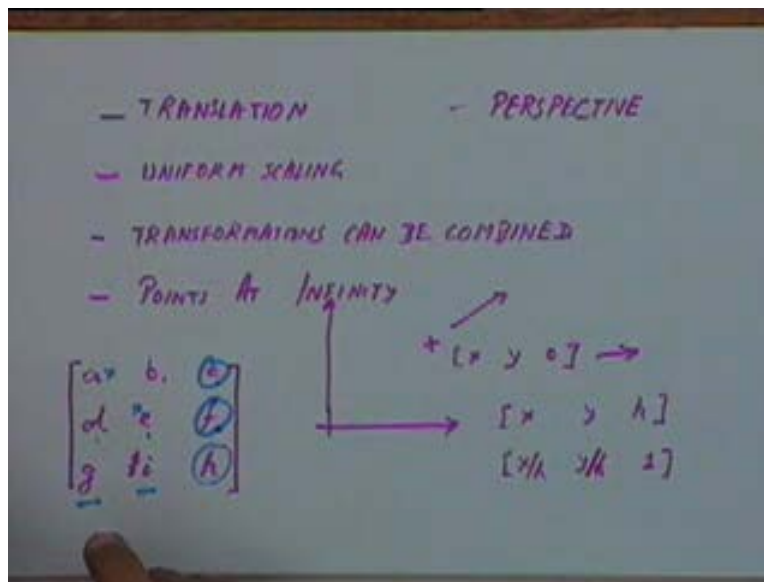 — TRANSLATION
- PERSPECTIVE
— UNIFORM SCALING
- TRANSFORMATIONS CAN BE COMBINED
- POINTS AT INFINITY
[x y 0] →
[x y h]
[x/h y/h 1]
a b c
d e f
g i h